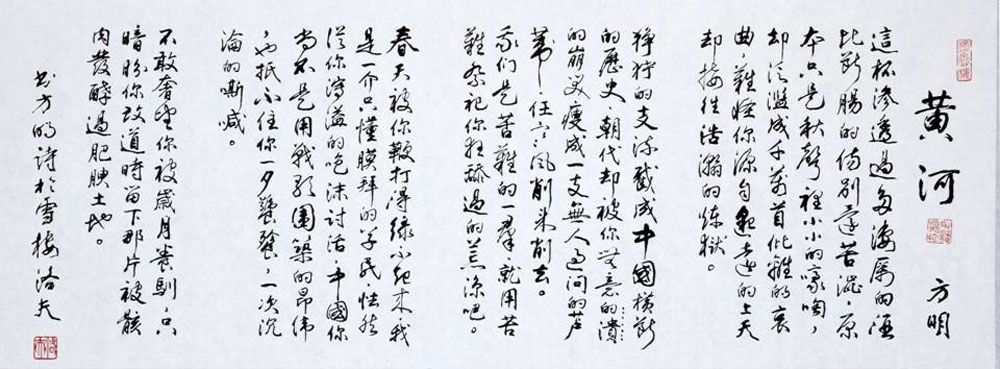 黄河
方明
這杯滲透過多淒厲的酒
比斷腸的傷別還苦澀,原
本只是秋聲裡小小的豪啕,
却泛濫成千萬首仳離的哀
曲,難怪你源自的上天
却接往浩瀚的煉獄。
猙獰的支流截成中國橫斷
的歷史,朝代却被你無意的潰
的崩瘦成一支無人過問的蘆
葦,任風削来削去。
我们是苦難的一羣,就用苦
難祭祀你狂舔過的荒凉吧。
春天被你鞭打得綠不起来,我
是一介只懂膜拜的草民,怯然
從你溢的泡沫討活,中國你
尚不是用戰鼓圍築的昂偉
也抵不住你一夕饕餮,一次沉
淪的嘶喊。
不敢奢望你被歲月養馴,只
暗盼你改道時留下那片被骸
肉發酵過肥腴土地。
书方明詩於雪樓洛夫